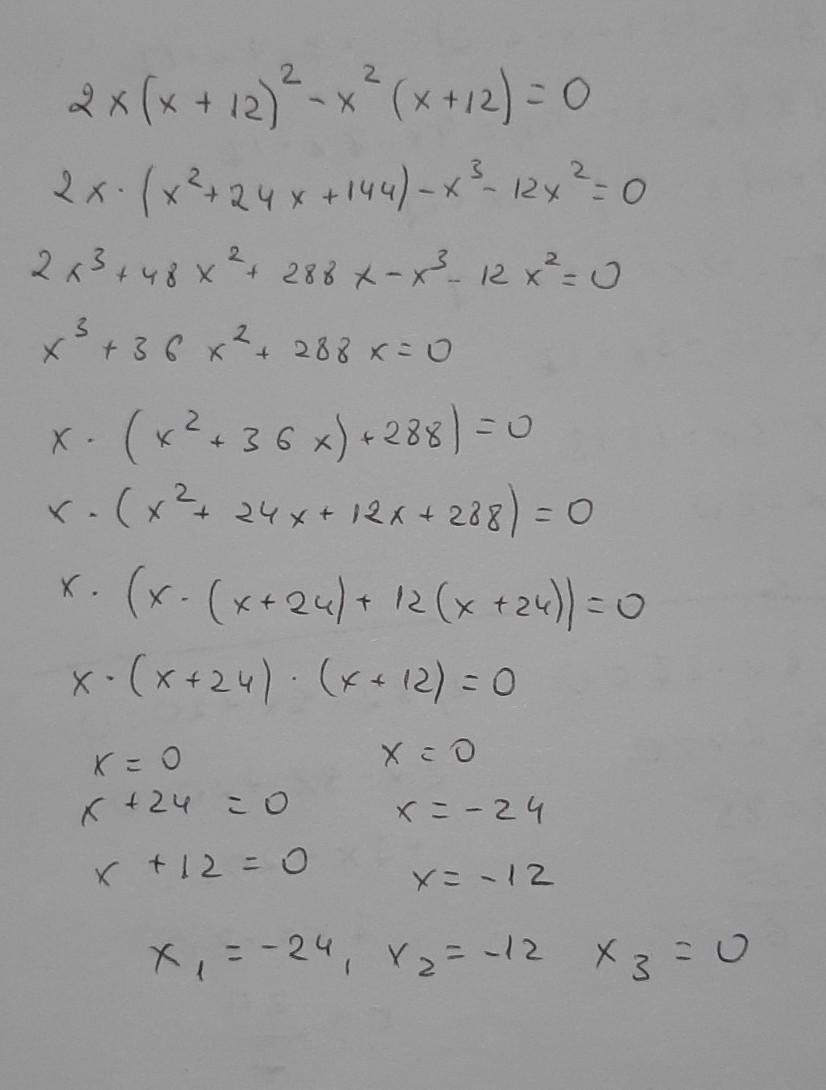 2x(x + 12)² - x² (x+12) = 0
2x · (x² + 24x + 144) - x³ - 12x² = 0
2x³ + 48x² + 288x - x³ - 12x² = 0
x³ + 36x² + 288x = 0
x · (x² + 36x) + 288) = 0
x · (x² + 24x + 12x + 288) = 0
x · (x · (x+24) + 12(x +24)) = 0
x · (x+24) · (x + 12) = 0
x = 0 x = 0
x +24 = 0 x = -24
x +12 = 0 x = -12
x₁ = -24, x₂ = -12 x₃ = 0